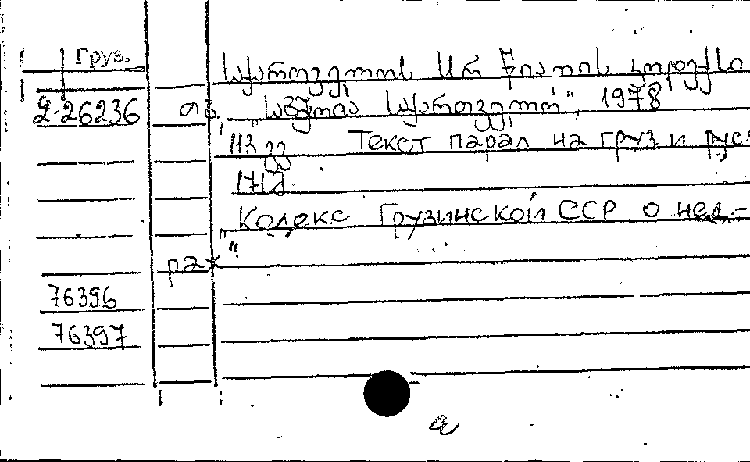 Груз.
საქართველოს სსრ წიაღის კოდექსი
2-26236 თბ., „საბჭოთა საქართველო", 1978
113 გვ Текст парал на груз и рус
171 გ
„Кодекс Грузинской ССР о нед-
рах"
76396
76397